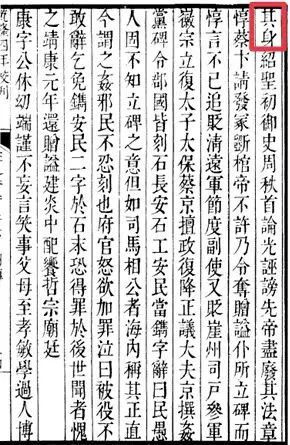 其身紹聖初御史周秩首論光誣謗先帝盡廢其法章
惇蔡卞請發冢斵棺帝不許乃令奪贈謚仆所立碑而
惇言不已追貶清遠軍節度副使又貶崖州司戶參軍
徽宗立復太子太保蔡京擅政復降正議大夫京撰姦
黨碑令郡國皆刻石長安石工安民當鐫字辭曰民愚
人固不知立碑之意但如司馬相公者海內稱其正直
今謂之姦邪民不忍刻也府官怒欲加罪泣曰被役不
敢辭乞免鐫安民二字於石末恐得罪於後世聞者愧
之靖康元年還贈謚建炎中配饗哲宗廟廷
康字公休幼端謹不妄言笑事父母至孝敏學過人博